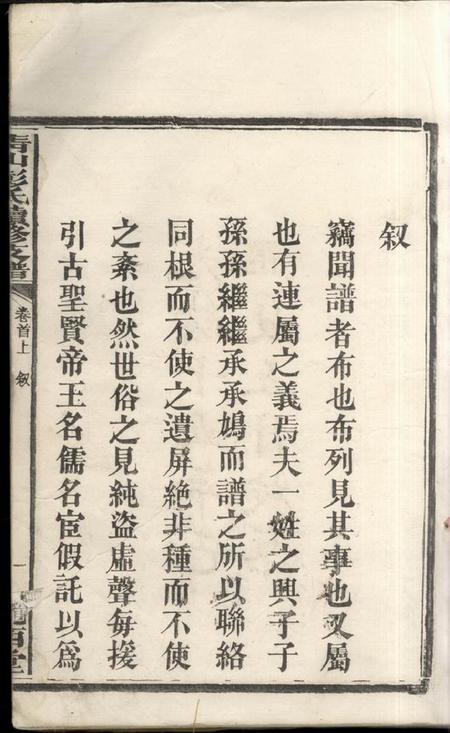 叙
竊聞譜者布也布列見其事也又屬
也有連屬之義焉夫一姓之興子子
孫孫繼繼承承鳩而譜之所以聯絡
同根而不使之遺屏絶非種而不使
之紊也然世俗之見純盜虛聲每援
引古聖賢帝王名儒名宦假託以爲
青山彭氏續修支譜
卷首上
叙
一
隴西堂